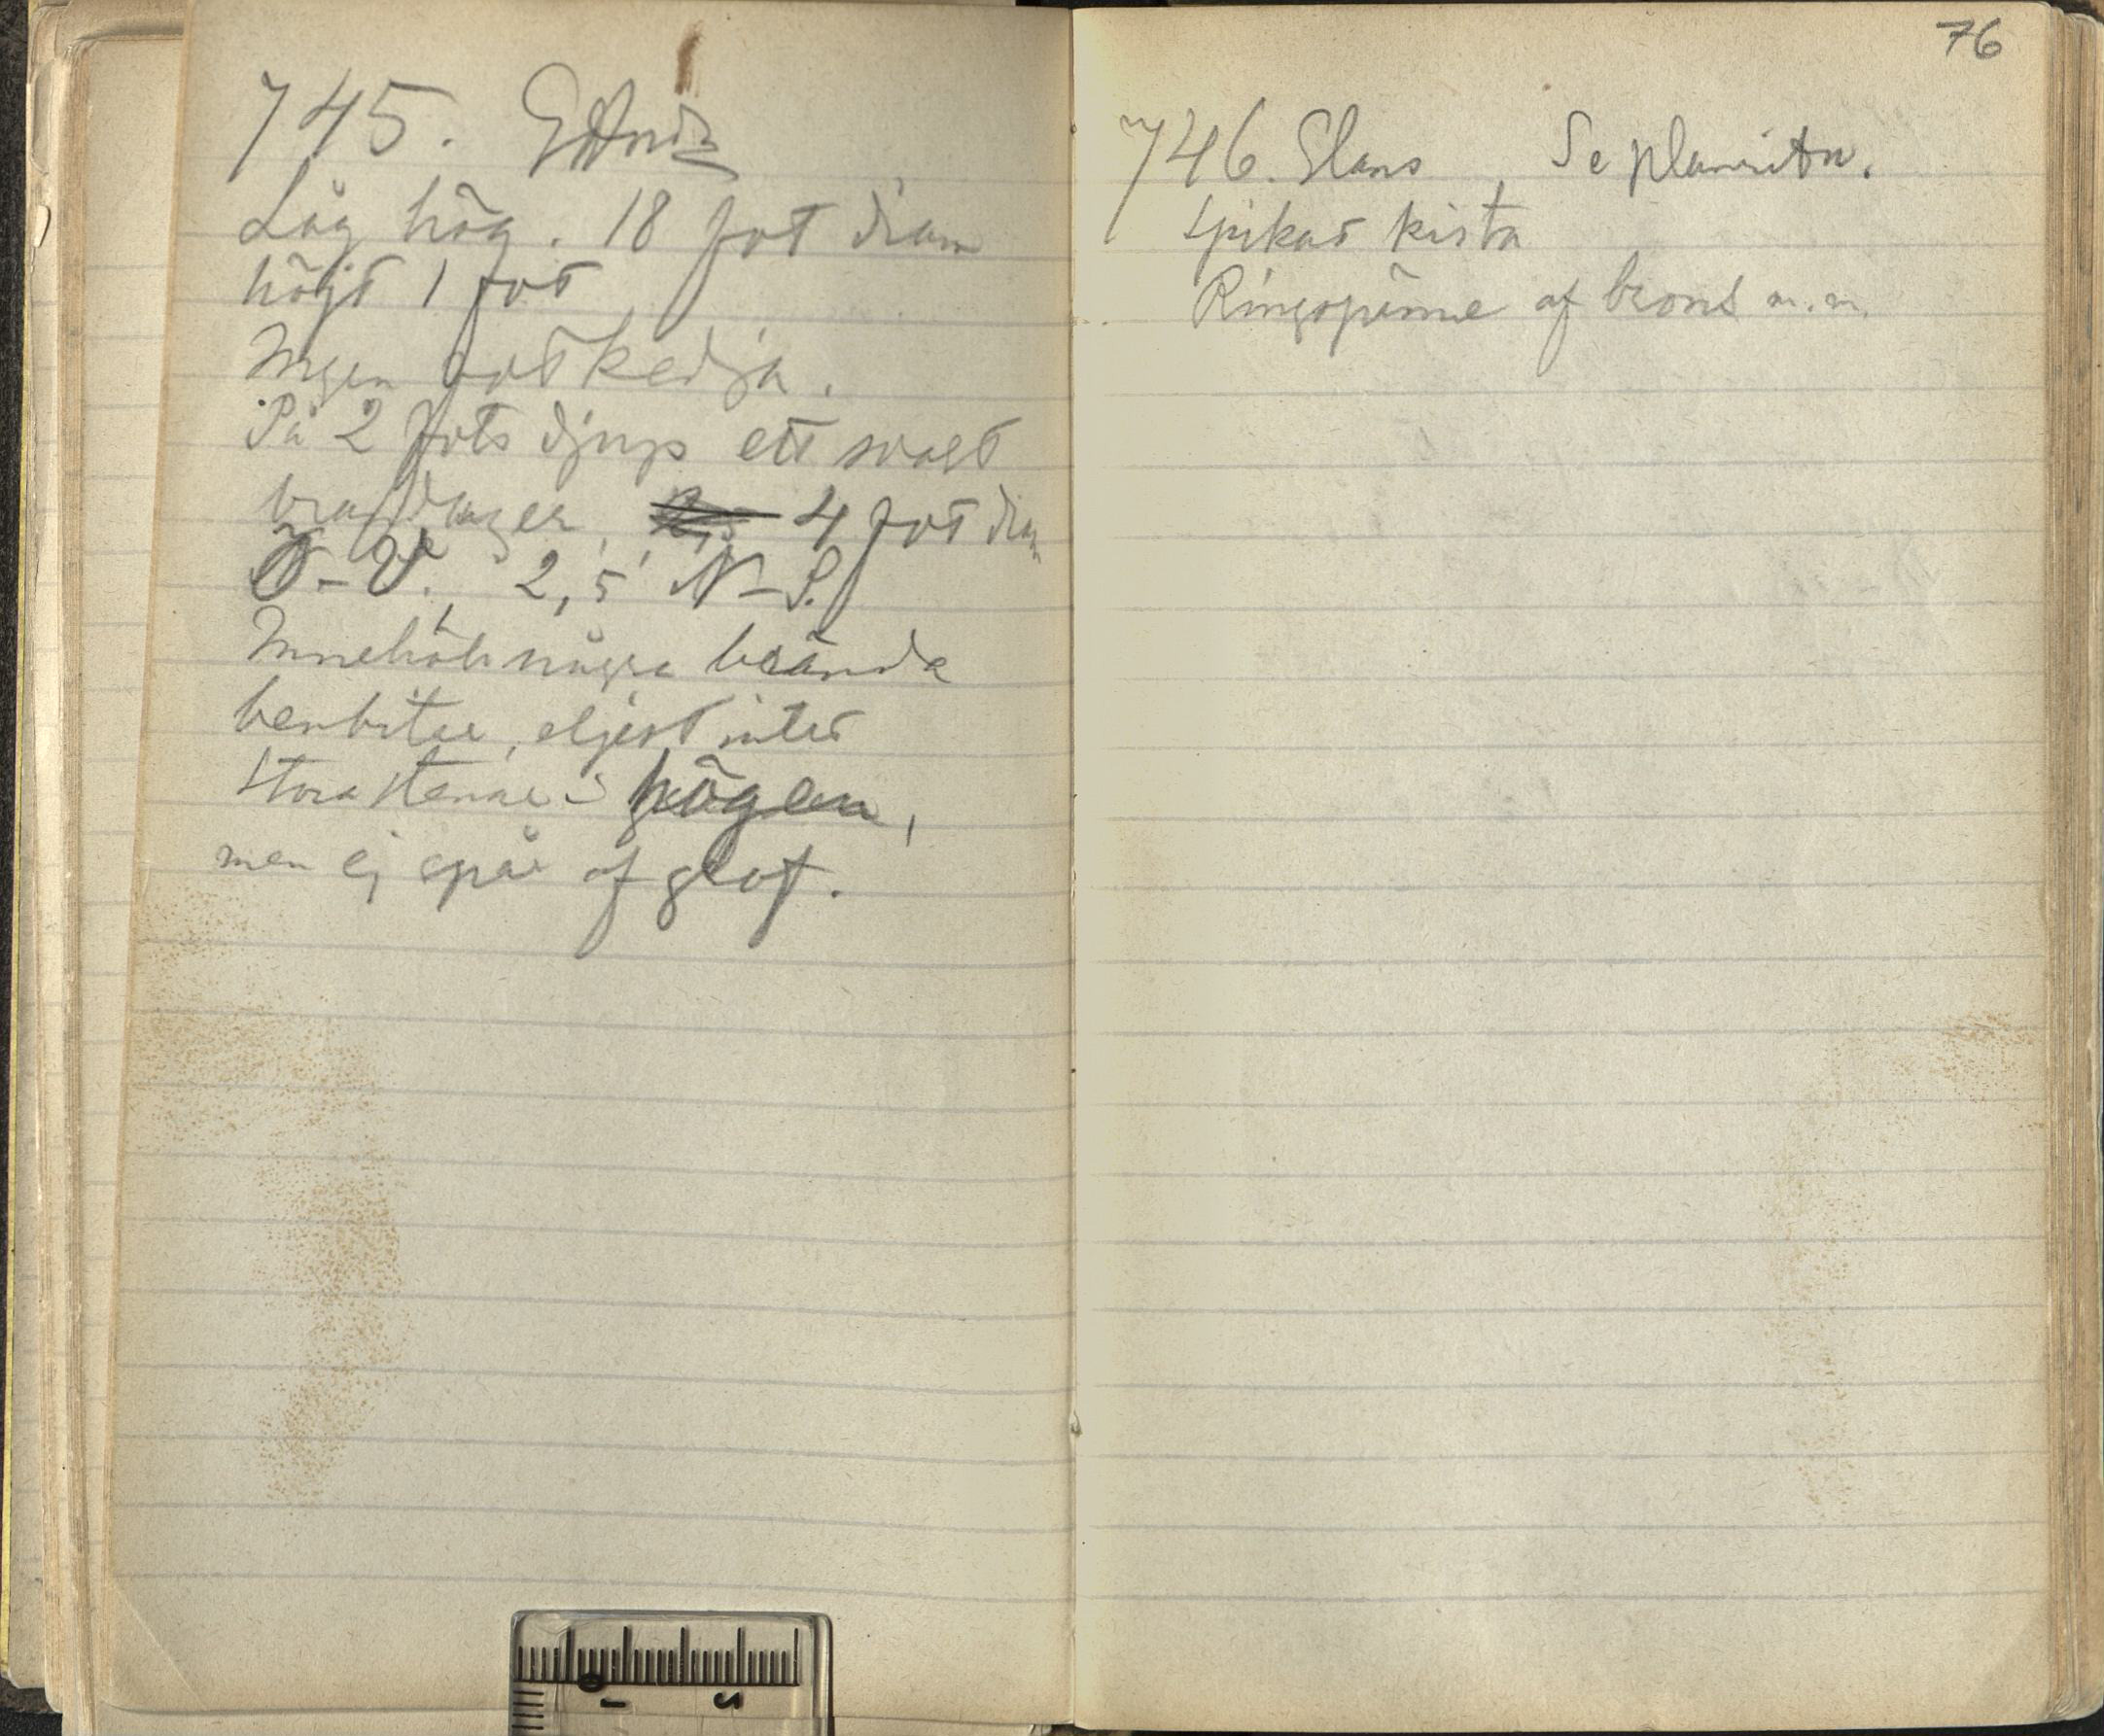 745.
Låg hög. 18 fot diam
höjd 1 fot
Ingen fotkedja.
På 2 fots djup ett svagt
brandlager, 4 fot diam
O-V. 2,5' N-S.
Innehöll några brända
benbitar, eljest intet
Stora stenar i högen,
men ej spår af graf.
76
746. Se planritn.
Spikad kista
Ringspänne af brons m.m.